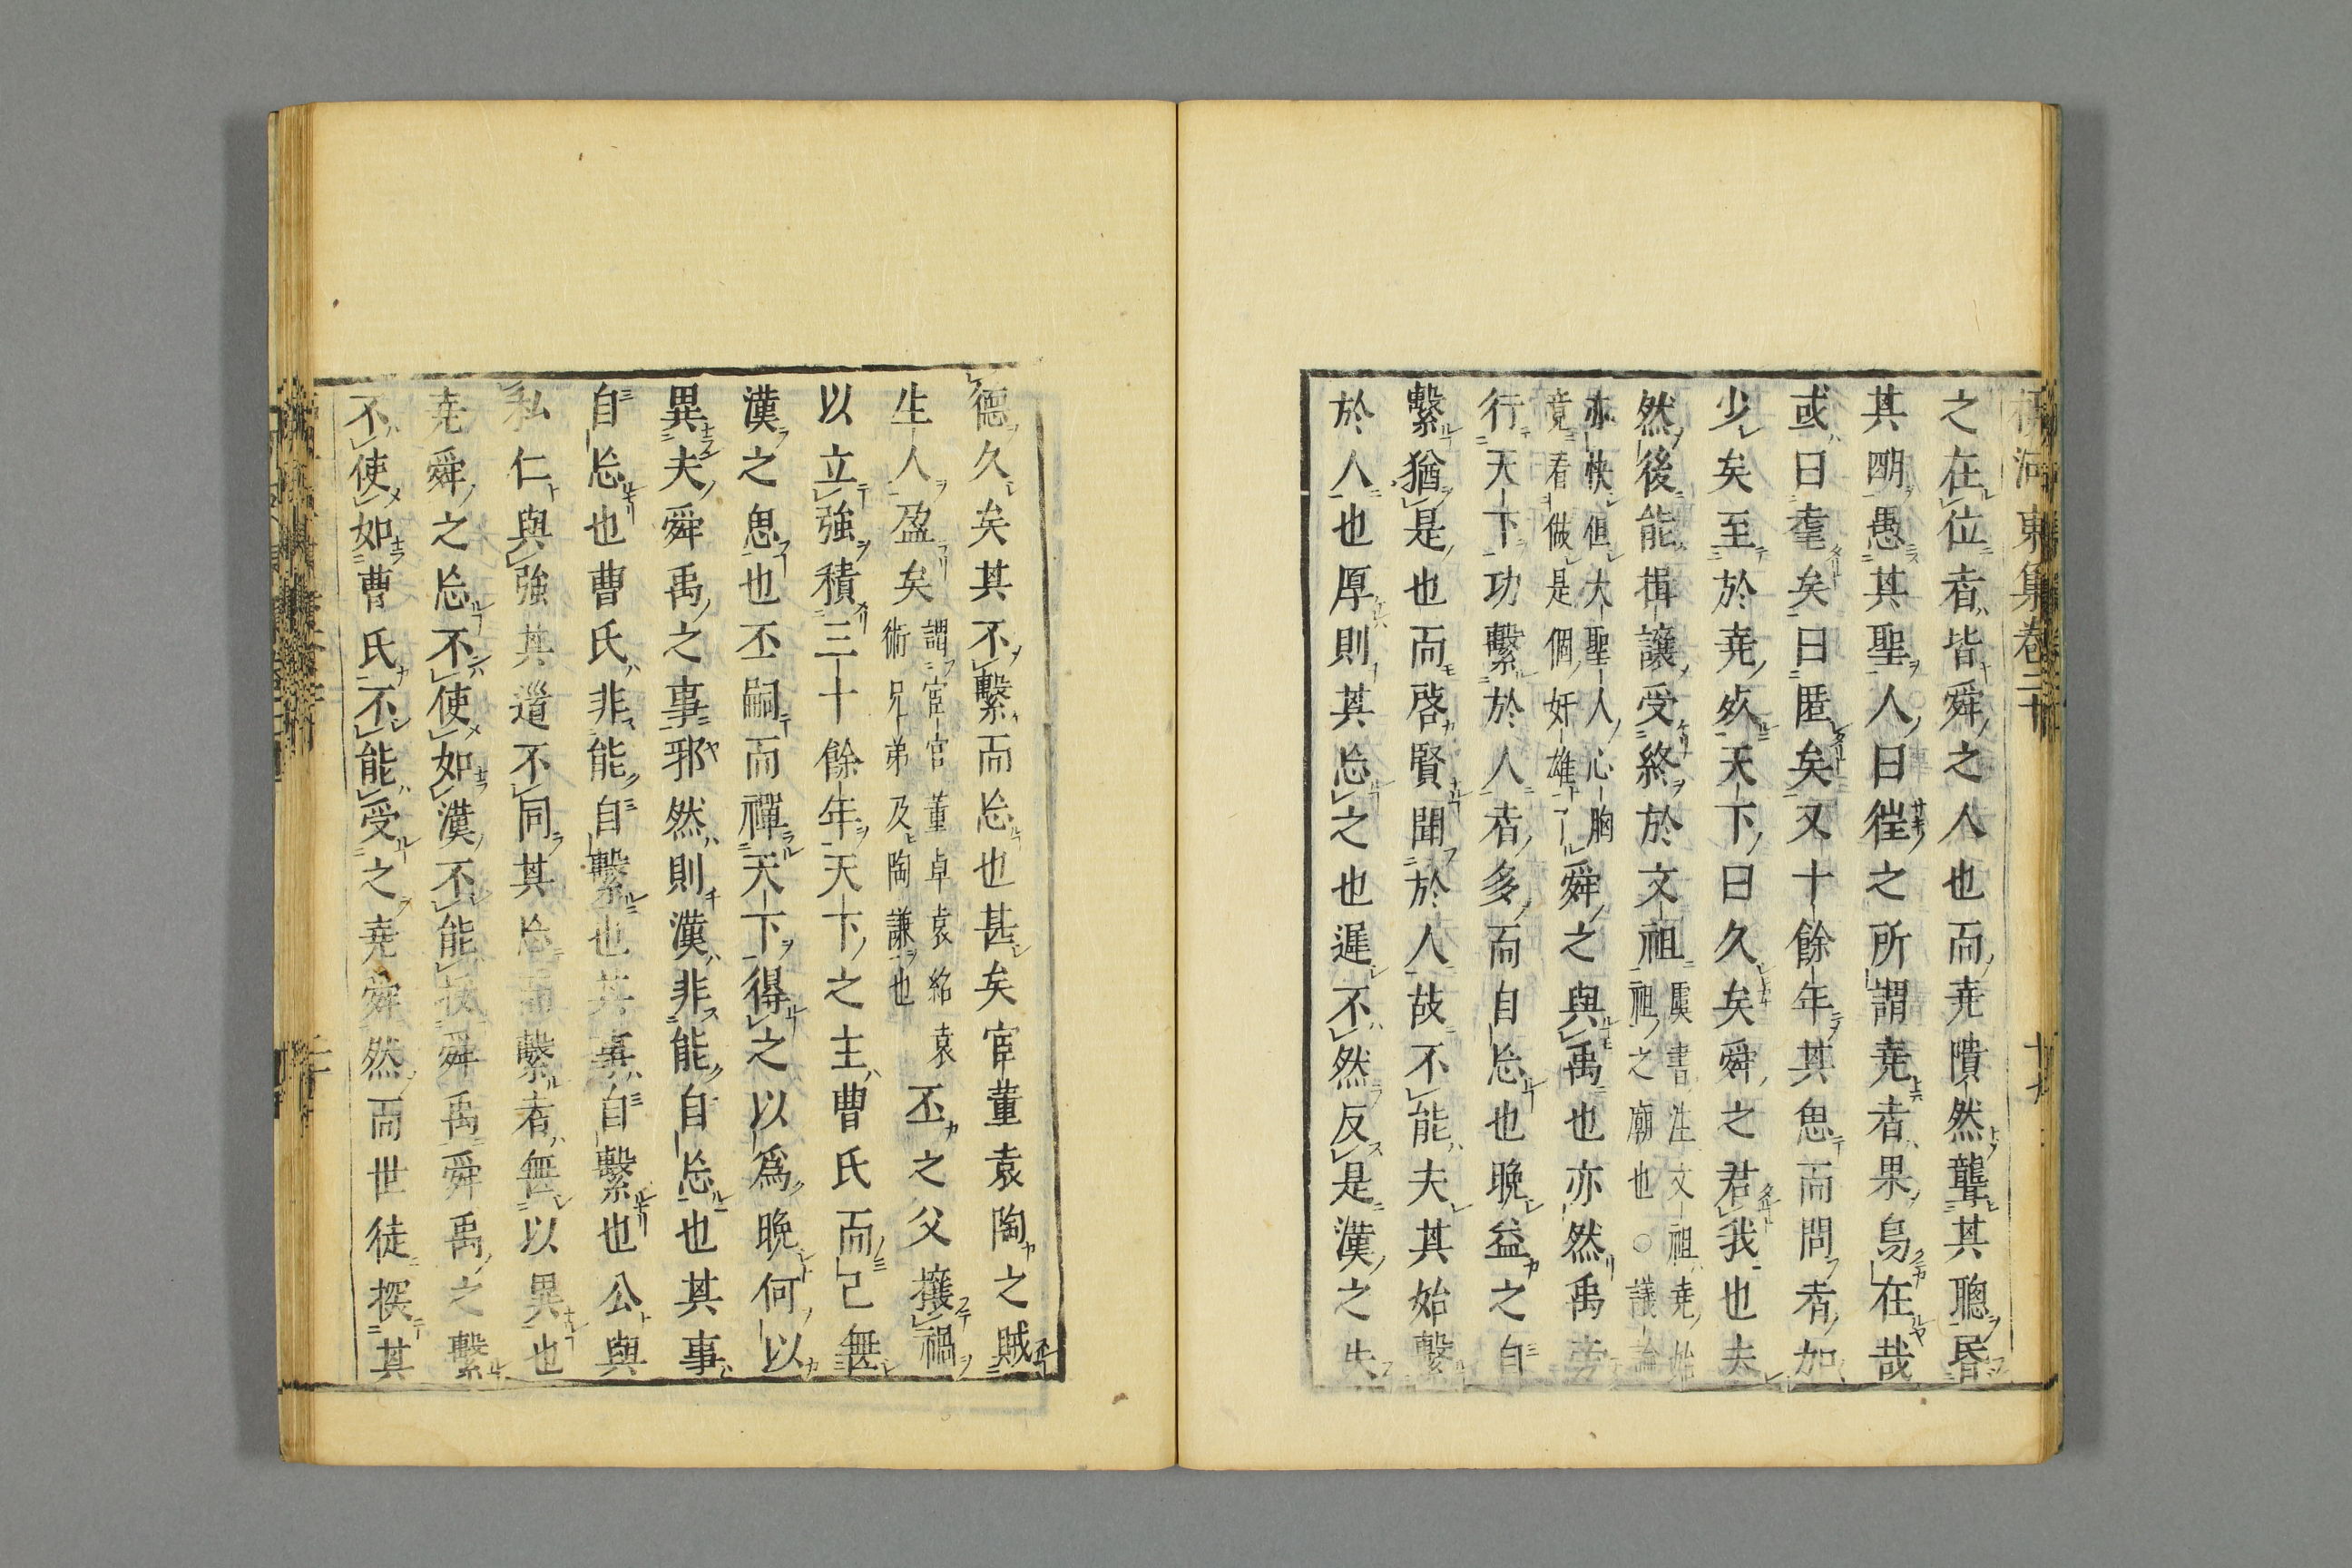 河東集卷二十
之在位者皆舜之人也而堯隤然聾其聰昏
其明愚其聖人曰徃之所謂堯者果烏在哉
或曰耄矣曰匿矣又十餘年其思而問者加
少矣至於堯死天下曰久矣舜之君我也夫
然後能揖讓受終於文祖
虞書注文祖堯始
祖之廟也○議論
亦快但大聖人心胸
竟看做是個奸雄
舜之與禹也亦然禹旁
行天下功繫於人者多而自㤀也晚益之自
繫猶是也而啓賢聞於人故不能夫其始繫
於人也厚則其㤀之也遲不然反是漢之失
德久矣其不繫而㤀也甚矣宦董袁陶之賊
生人盈矣
謂宦官董卓袁紹袁
術兄弟及陶謙也
丕之父攘禍
以立強積三十餘年天下之主曹氏而已無
漢之思也丕嗣而禪天下得之以爲晚何以
異夫舜禹之事邪然則漢非能自㤀也其事
自㤀也曹氏非能自繫也其事自繫也公與
私仁與強其道不同其㤀而繫者無以異也
堯舜之㤀不使如漢不能授舜禹舜禹之繫
不使如曹氏不能受之堯舜然而世徒探其